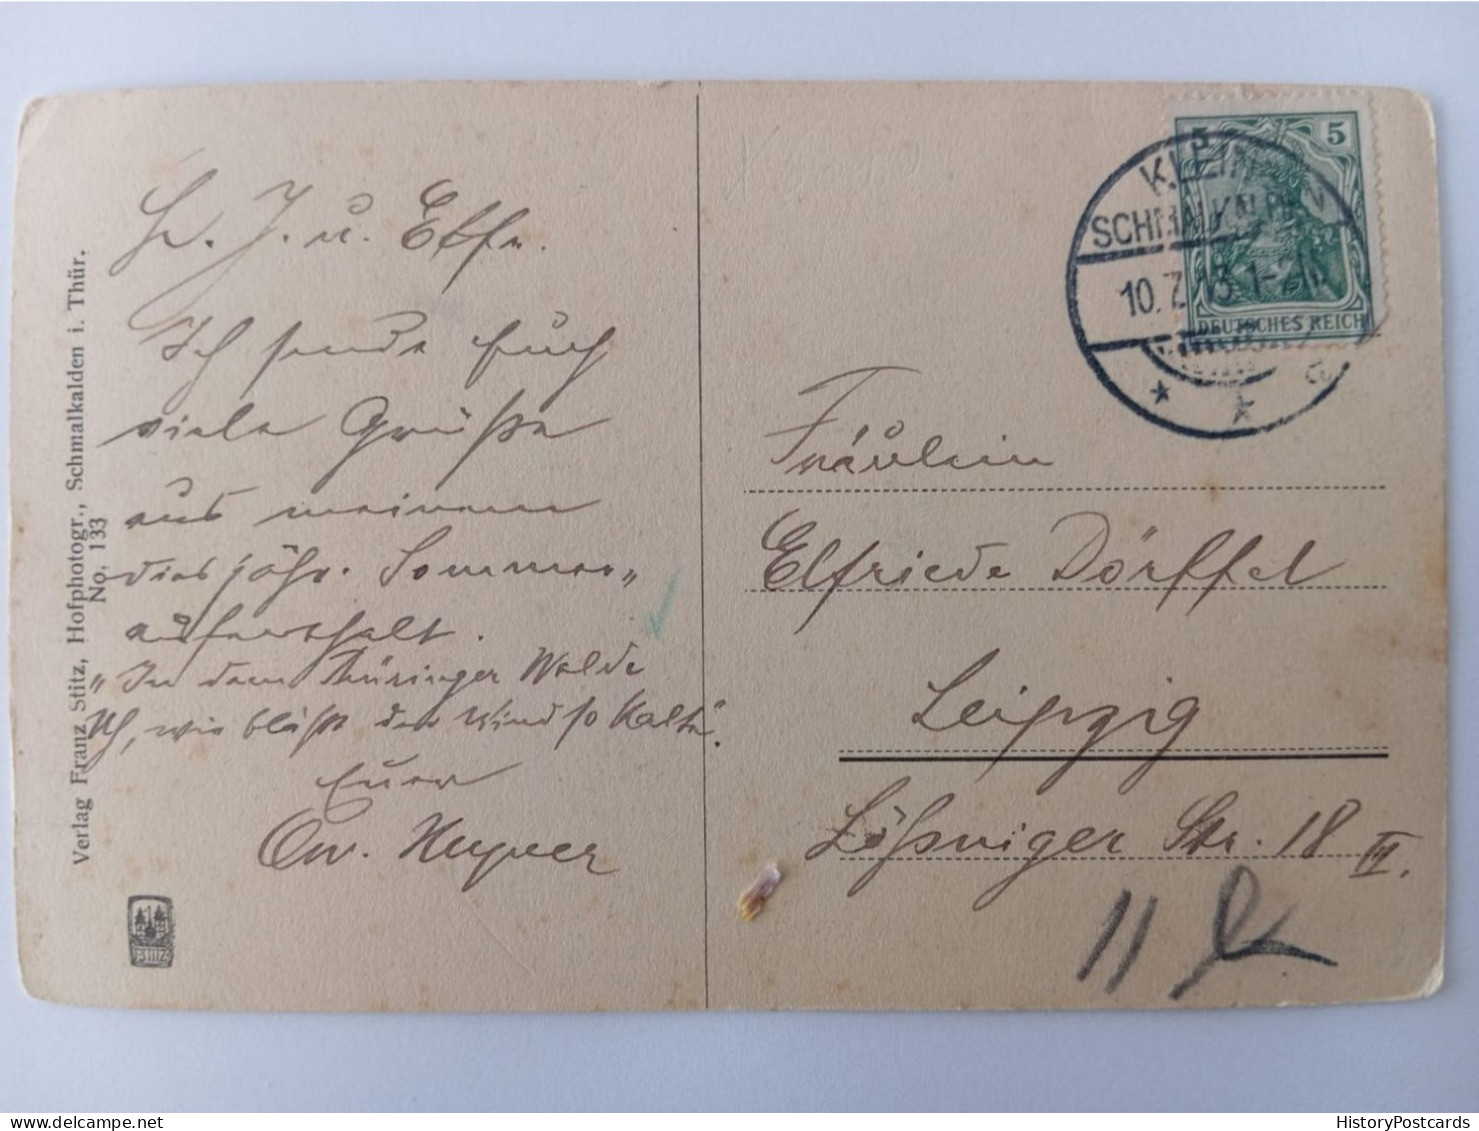 Verlag Franz Stitz, Hofphotogr., Schmalkalden i. Thür.
No. 133
STITZ
L. J. u. Elfr.
Ich sende Euch
viele Grüße
aus meinem
diesjähr. Sommer„
aufenthalt.
„In dem Thüringer Walde
, wie bläst der Wind so kalt“.
Euer
5 5
KLEIN
SCHMALKALDEN
10. 7. 13. 1-2 N.
DEUTSCHES REICH
* * a
Fräulein
Elfriede Dörffel
Leipzig
Lößniger Str. 18 III.
11
HistoryPostcards.com